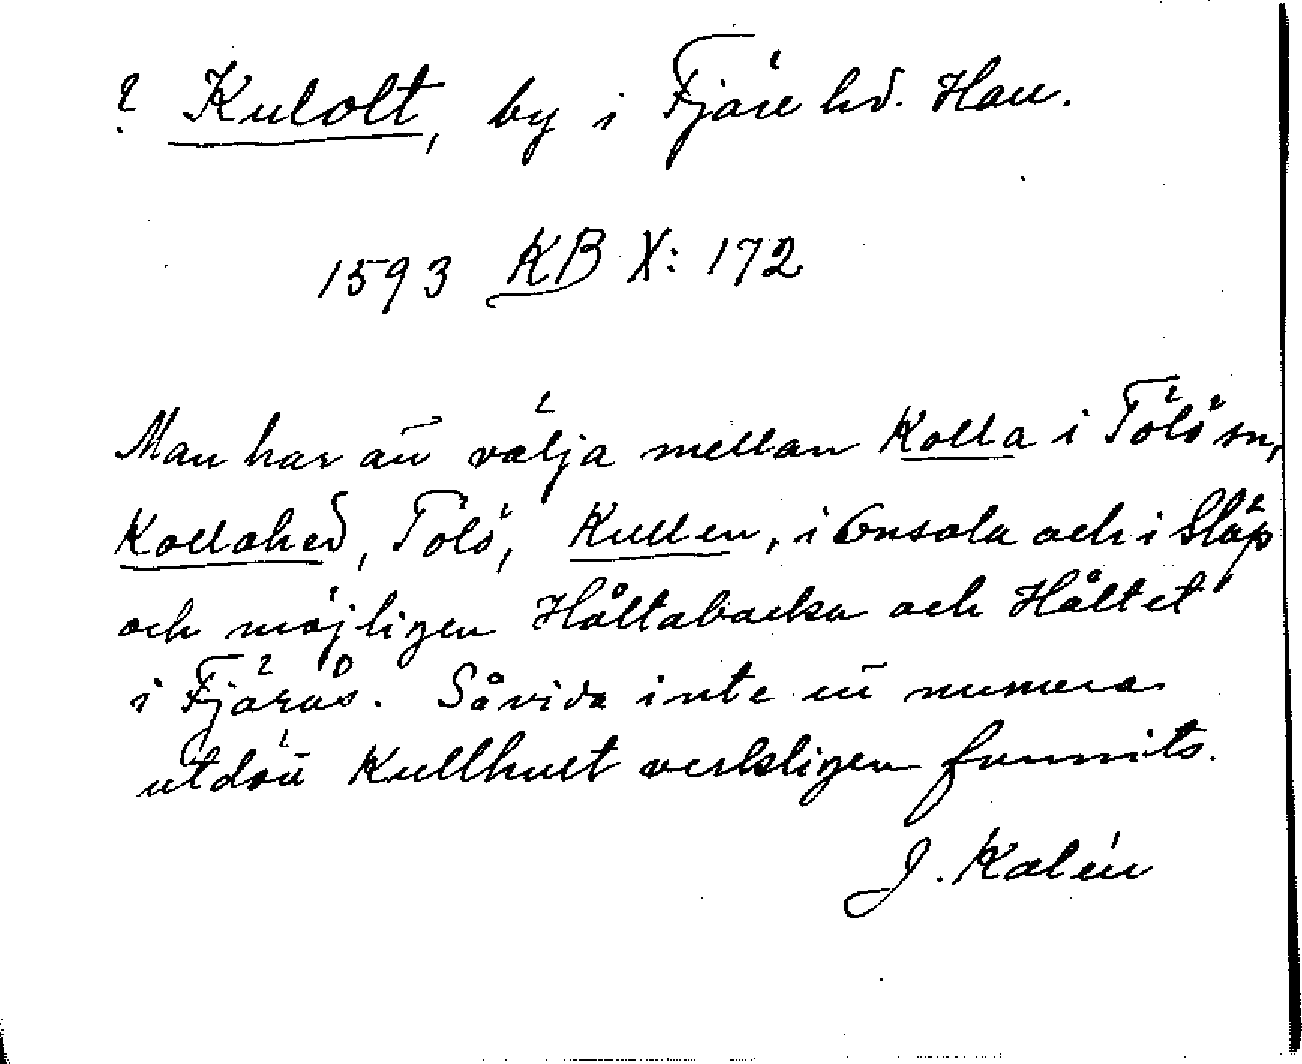 ? Kulolt, by i Fjäre hd. Hall.
1593 KB X: 172
Man har att välja mellan Kolla i Tölö sn,
Kollahed, Tölö, Kullen, i Onsala och i Släp
och möjligen Håltabacka och Håltet
i Fjärås. Såvida inte ett numera
utdött Kullhult verkligen funnits.
J. Kalén